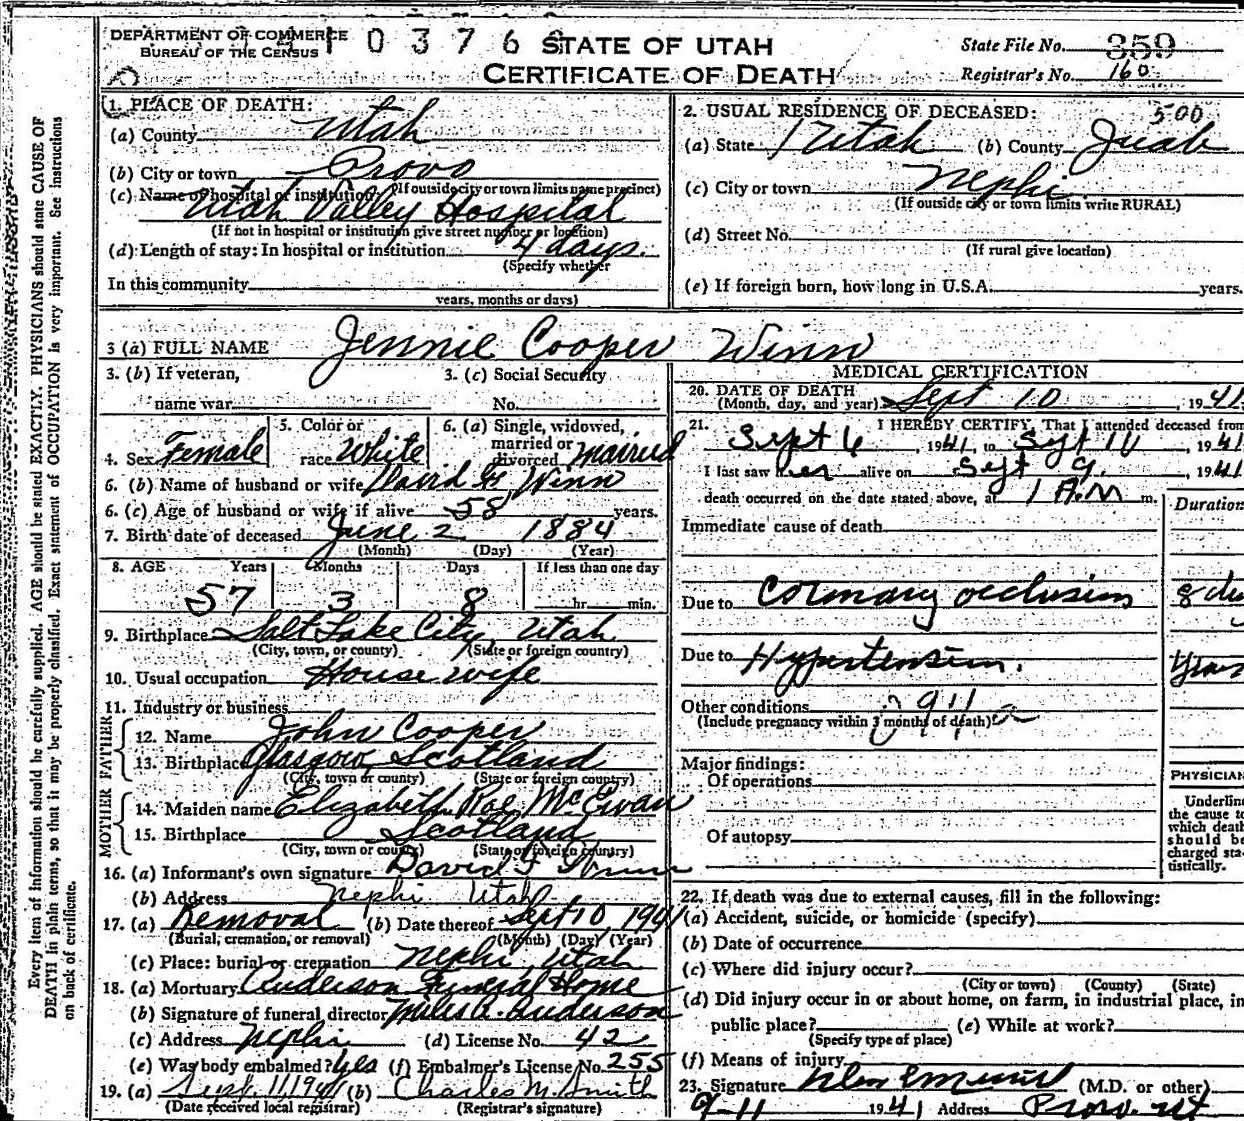 DEPARTMENT OF COMMERCE
BUREAU OF THE CENSUS
4 1 0 3 7 6
STATE OF UTAH
CERTIFICATE OF DEATH
State File No. 359
Registrar's No. 160
1. PLACE OF DEATH:
(a) County Utah
(b) City or town Provo
(If outside city or town limits name precinct)
(c) Name of hospital or institution
Utah Valley Hospital
(If not in hospital or institution give street number or location)
(d) Length of stay: In hospital or institution 4 days.
(Specify whether
In this community
years, months or days)
2. USUAL RESIDENCE OF DECEASED: 500
(a) State Utah (b) County Juab
(c) City or town Nephi
(If outside city or town limits write RURAL)
(d) Street No.
(If rural give location)
(e) If foreign born, how long in U.S.A. years.
3 (a) FULL NAME Jennie Cooper Winn
3. (b) If veteran,
name war
3. (c) Social Security
No.
4. Sex Female
5. Color or
race White
6. (a) Single, widowed,
married or
divorced married
6. (b) Name of husband or wife David F. Winn
6. (c) Age of husband or wife if alive 58 years.
7. Birth date of deceased June 2 1884
(Month) (Day) (Year)
8. AGE Years Months Days If less than one day
57 3 8 hr. min.
9. Birthplace Salt Lake City, Utah
(City, town, or county) (State or foreign country)
10. Usual occupation House wife
11. Industry or business
FATHER
12. Name John Cooper
13. Birthplace Glasgow Scotland
(City, town or county) (State or foreign country)
MOTHER
14. Maiden name Elizabeth Rae McEwan
15. Birthplace Scotland
(City, town or county) (State or foreign country)
16. (a) Informant's own signature David F Winn
(b) Address Nephi Utah
17. (a) Removal (b) Date thereof Sept 10, 1941
(Burial, cremation, or removal) (Month) (Day) (Year)
(c) Place: burial or cremation Nephi, Utah
18. (a) Mortuary Anderson Funeral Home
(b) Signature of funeral director Miles A. Anderson
(c) Address Nephi (d) License No. 42
(e) Was body embalmed? Yes (f) Embalmer's License No. 255
19. (a) Sept. 11, 1941 (b) Charles M. Smith
(Date received local registrar) (Registrar's signature)
MEDICAL CERTIFICATION
20. DATE OF DEATH
(Month, day, and year) Sept 10, 1941
21. I HEREBY CERTIFY, That I attended deceased from
Sept 6, 1941 to Sept 10, 1941
I last saw her alive on Sept 9, 1941
death occurred on the date stated above, at 1 A.M m.
Duration
Immediate cause of death
Due to Coronary occlusion 8 da
Due to Hypertension. Years
Other conditions
(Include pregnancy within 3 months of death)
Major findings:
Of operations
Of autopsy
PHYSICIAN
Underline
the cause to
which death
should be
charged sta-
tistically.
22. If death was due to external causes, fill in the following:
(a) Accident, suicide, or homicide (specify)
(b) Date of occurrence
(c) Where did injury occur?
(City or town) (County) (State)
(d) Did injury occur in or about home, on farm, in industrial place, in
public place? (e) While at work?
(Specify type of place)
(f) Means of injury
23. Signature (M.D. or other)
9-11 1941 Address Provo. Ut
Every item of information should be carefully supplied. AGE should be stated EXACTLY. PHYSICIANS should state CAUSE OF
DEATH in plain terms, so that it may be properly classified. Exact statement of OCCUPATION is very important. See instructions
on back of certificate.